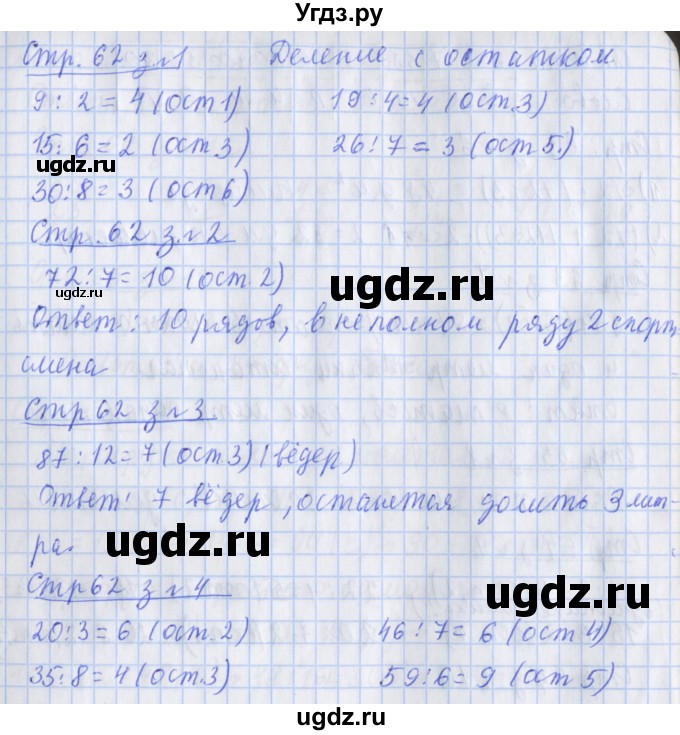 Угдз.ру
Стр. 62 з.№1 Деление с остатком
9 : 2 = 4 (ост 1) 19 : 4 = 4 (ост.3)
15 : 6 = 2 (ост 3) 26 : 7 = 3 (ост 5.)
www.ugdz.ru
30 : 8 = 3 (ост 6)
Стр. 62 з.№2
72 : 7 = 10 (ост 2)
www.ugdz.ru
ugdz.ru
Ответ : 10 рядов, в неполном ряду 2 спорт
ugdz.ru
смена
Стр 62 з №3.
87 : 12 = 7 (ост.3) (вёдер)
Ответ: 7 вёдер, останется долить 3 лит-
ра.
ugdz.ru
ugdz.ru
Стр 62 з №4
20 : 3 = 6 (ост. 2) 46 : 7 = 6 (ост 4)
35 : 8 = 4 (ост.3) 59 : 6 = 9 (ост 5)
ugdz.ru
ugdz.ru